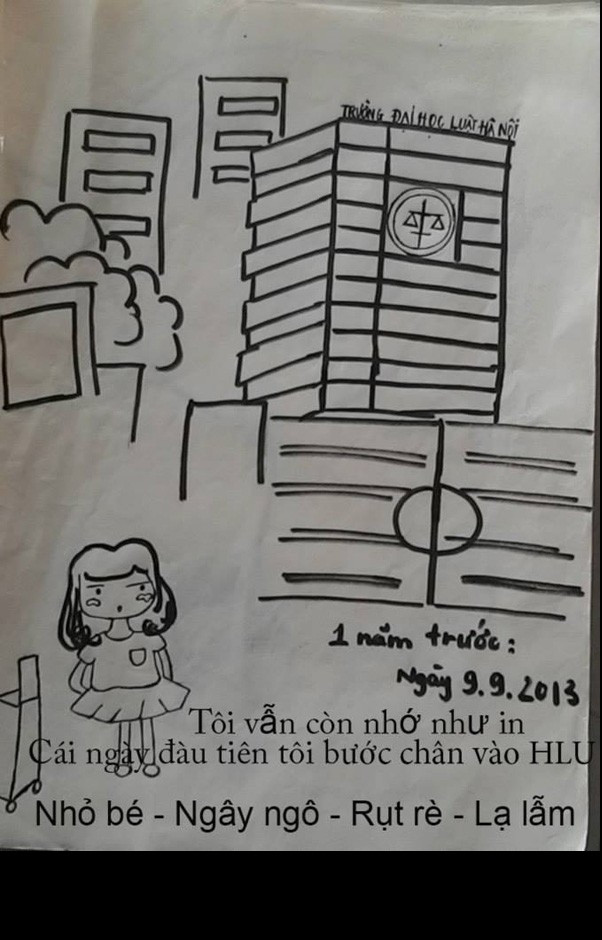 TRƯỜNG ĐẠI HỌC LUẬT HÀ NỘI
1 năm trước:
Ngày 9.9.2013
Tôi vẫn còn nhớ như in
Cái ngày đàu tiên tôi bước chân vào HLU
Nhỏ bé - Ngây ngô - Rụt rè - Lạ lẫm